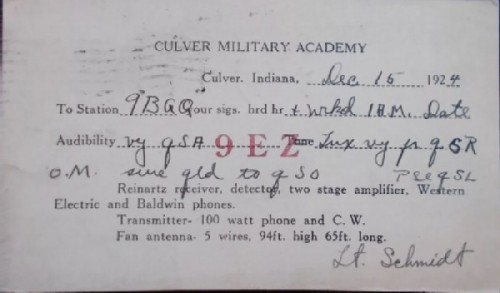 CULVER MILITARY ACADEMY
Culver, Indiana, Dec 15 1924
To Station "9BQQ" our sigs. hrd hr & wrkd 1 H.M. Date
Audibility vy QSA 9EZ Tone Lux vy
O.M. sure gld to qso Pse qSL
Reinartz receiver, detector, two stage amplifier, Western
Electric and Baldwin phones.
Transmitter- 100 watt phone and C. W.
Fan antenna- 5 wires, 94ft. high 65ft. long.
Lt. Schmidt